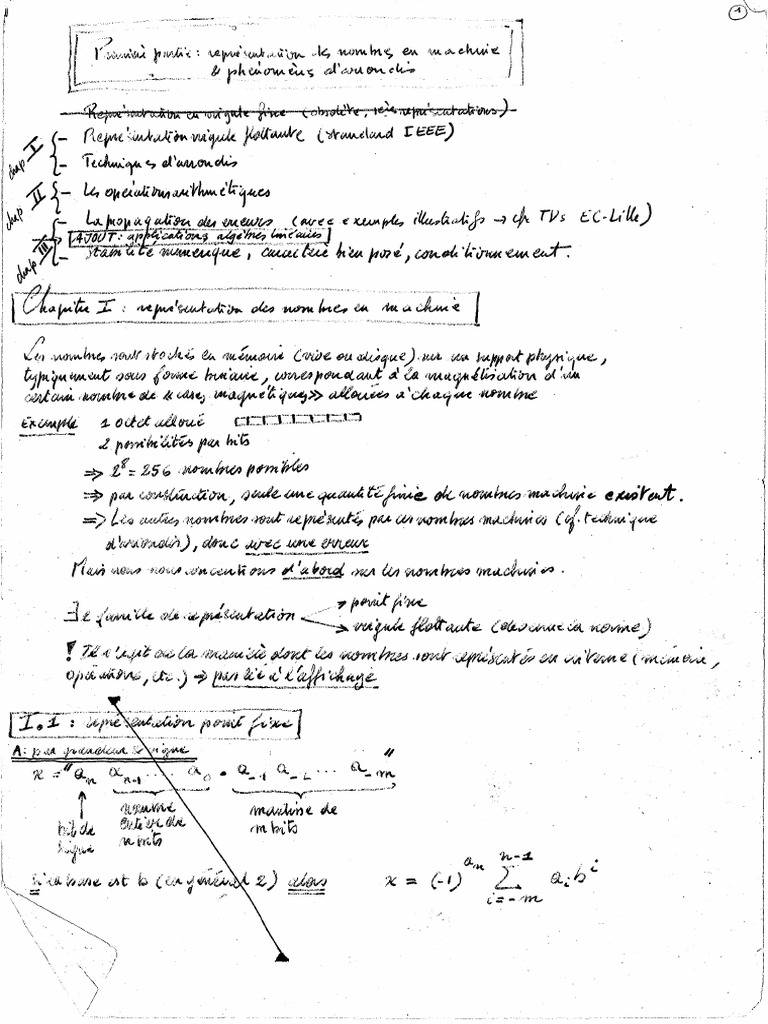 1
Première partie : représentation des nombres en machine
& phénomènes d'arrondis
Représentation en virgule fixe (obsolète, représentations)
chap I - Représentation virgule flottante (standard IEEE)
- Techniques d'arrondis
chap II - Les opérations arithmétiques
- La propagation des erreurs (avec exemples illustratifs → cfr TVs EC-Lille)
AJOUT : applications algèbres linéaires
chap III - stabilité numérique, caractère bien posé, conditionnement.
Chapitre I : représentation des nombres en machine
Les nombres sont stockés en mémoire (vive ou disque) sur un support physique,
typiquement sous forme binaire, correspondant à la magnétisation d'un
certain nombre de « cases magnétiques » allouées à chaque nombre
Exemple 1 octet alloué
2 possibilités par bits
⇒ 2⁸ = 256 nombres possibles
⇒ par construction, seule une quantité finie de nombres machine existent.
⇒ Les autres nombres sont représentés par ces nombres machines (cf. technique
d'arrondis), donc avec une erreur
Mais nous nous concentrons d'abord sur les nombres machines.
∃ 2 famille de représentation → point fixe
→ virgule flottante (devenue la norme)
! Il s'agit de la manière dont les nombres sont représentés en interne (mémoire,
opérations, etc.) → pas lié à l'affichage
I.1 : représentation point fixe
A : par grandeur & signe
x = "aₙ aₙ₋₁ ... a₀ . a₋₁ a₋₂ ... a₋ₘ"
bit de signe
nombre entier de n bits
mantisse de m bits
Si la base est b (en général 2) alors x = (-1)^{aₙ} Σ_{i=-m}^{n-1} aᵢ bⁱ